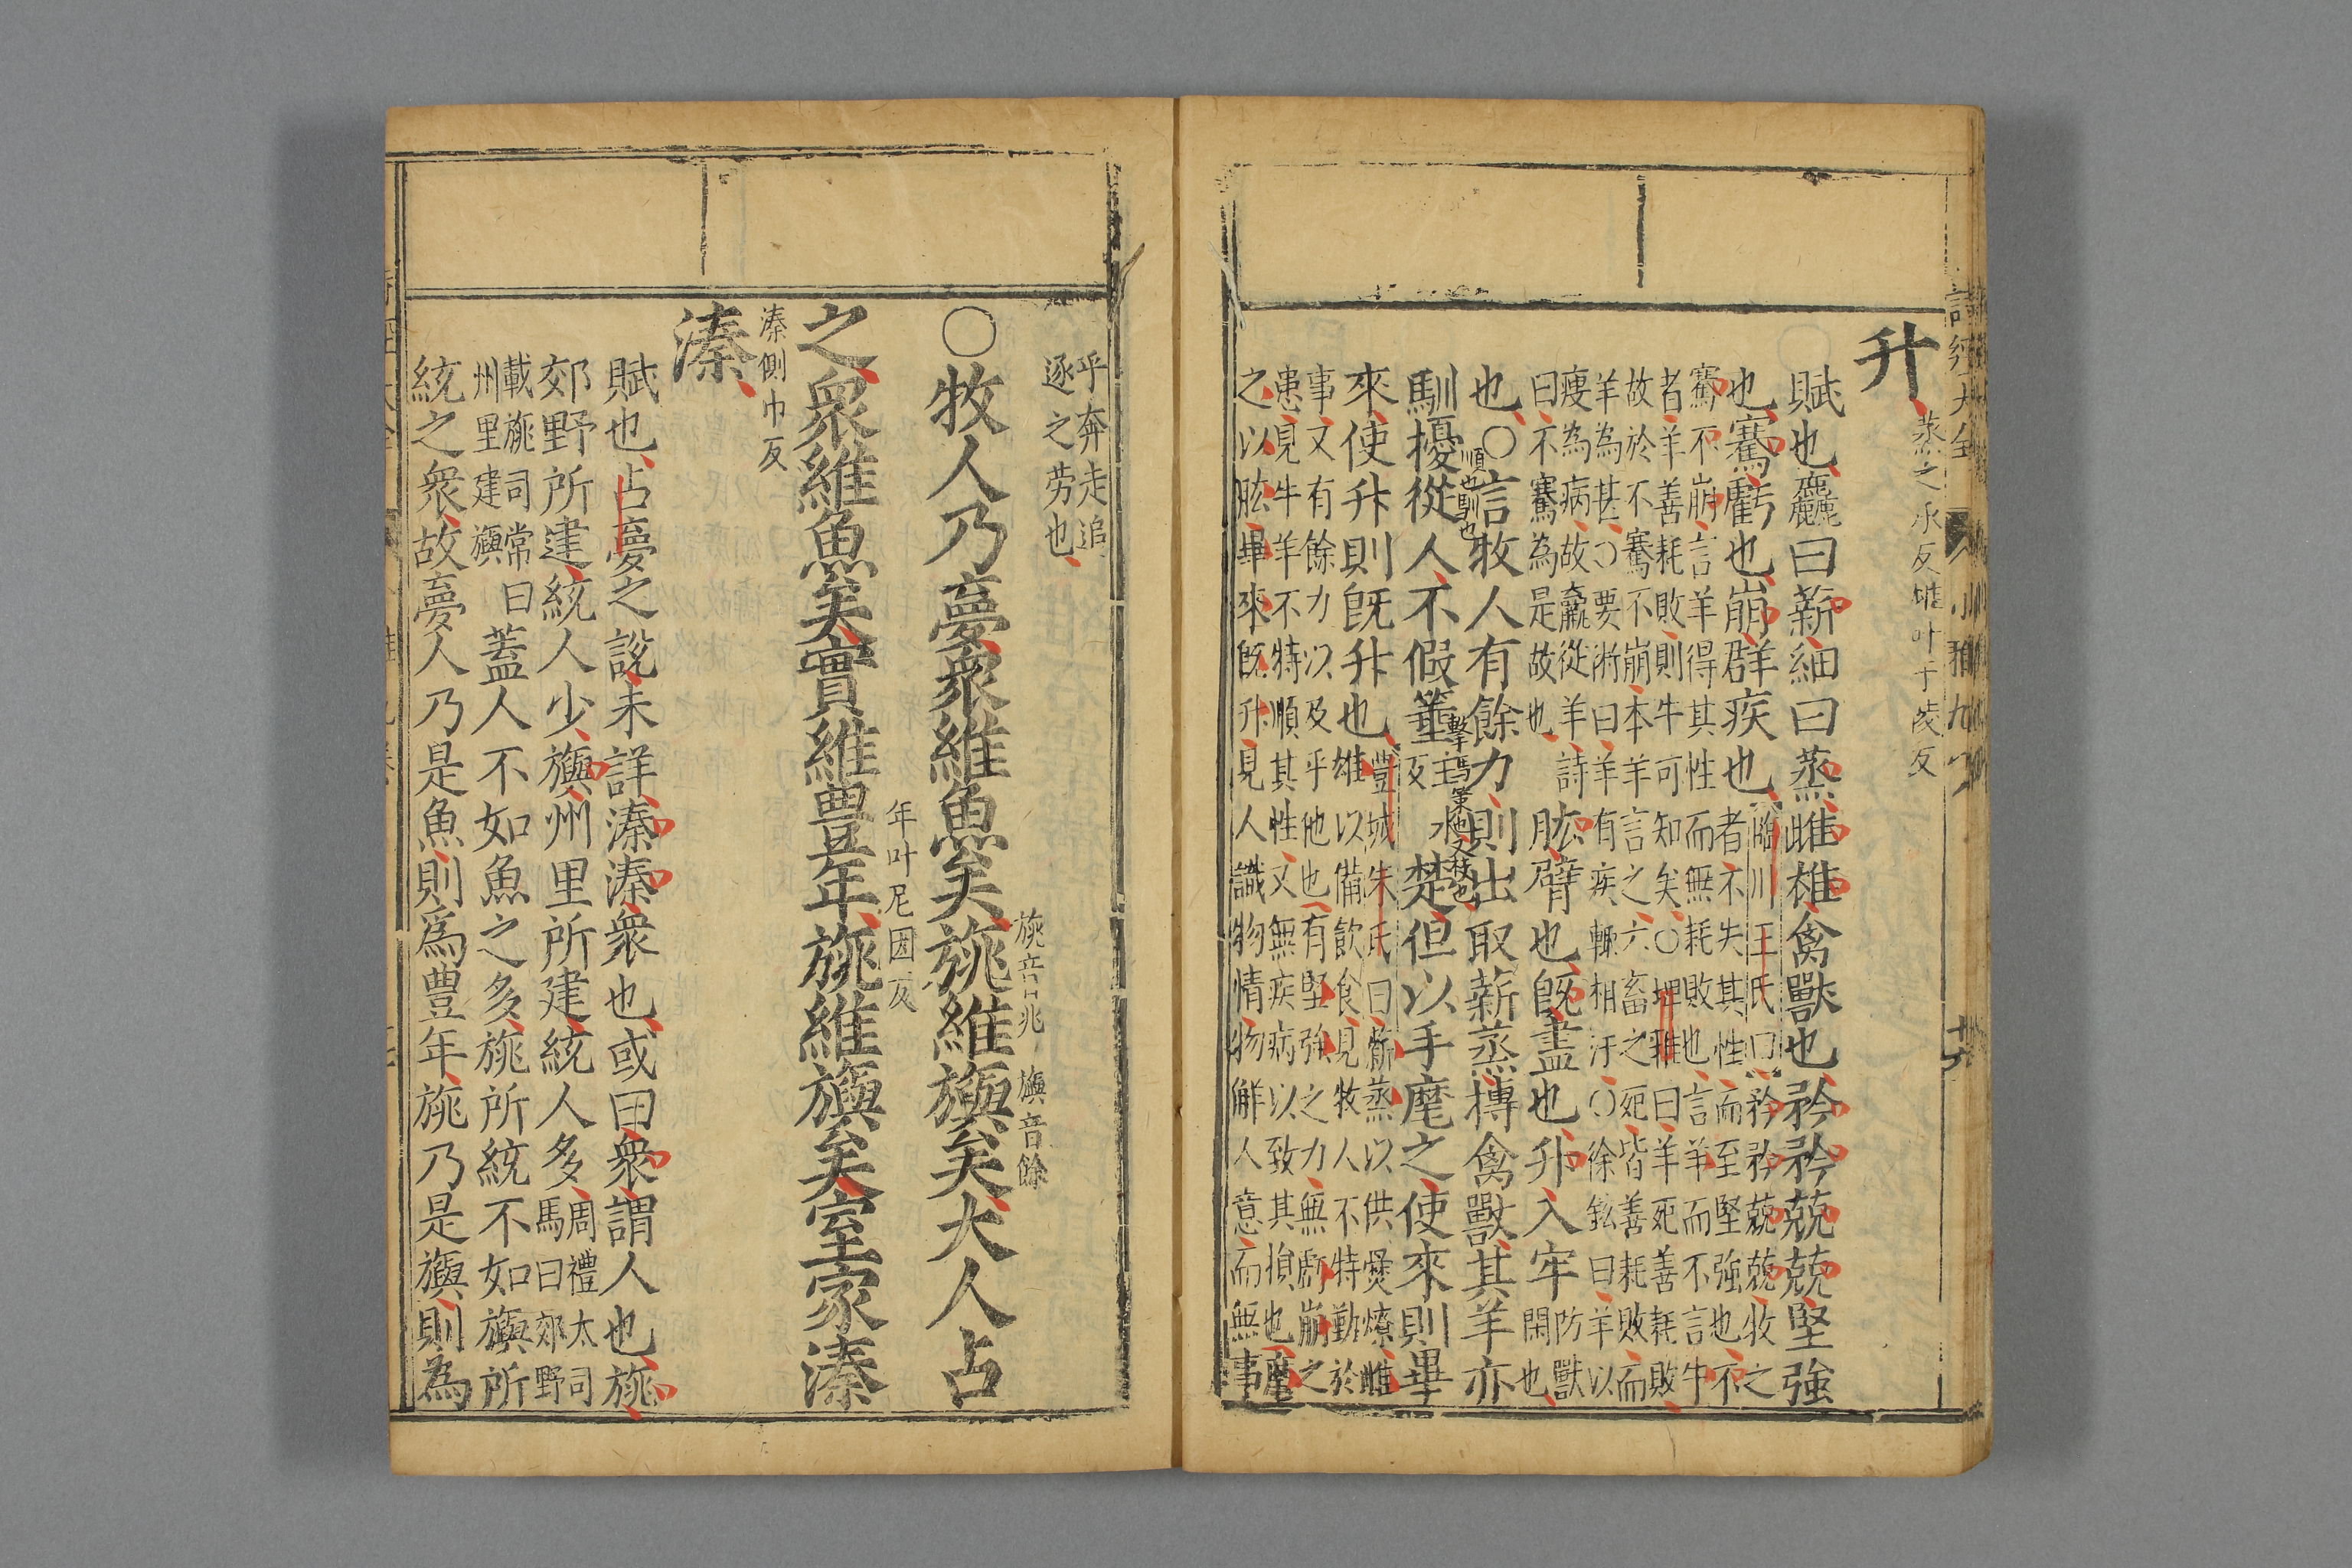 升
蒸之氶反雄叶于陵反
賦也麤曰薪細曰蒸雌雄禽獸也矜矜兢兢堅強
也騫虧也崩群疾也
臨川王氏曰矜矜兢兢牧之
者不失其性而至堅強也不
騫不崩言羊得其性而無耗敗也言羊而不言牛
者羊善耗敗則牛可知矣○埤雅曰羊死善耗敗
故於不騫不崩本羊言之六畜之死皆善耗敗而
羊為甚○要術曰羊有疾輙相汙○徐鉉曰羊以
瘦為病故羸從羊詩
曰不騫為是故也
肱臂也旣盡也升入牢
防獸
閑也
也○言牧人有餘力則出取薪蒸摶禽獸其羊亦
順也馴也
馴擾從人不假箠
主
反
楚但以手麾之使來則畢
擊馬策也又杖也
來使升則旣升也
豐城朱氏曰薪蒸以供爨燎雌
雄以備飲食見牧人不特勤於
事又有餘力以及乎他也有堅強之力無虧崩之
患見牛羊不特順其性又無疾病以致其損也麾
之以肱畢來旣升見人識物情物解人意而無事
詩經大全 小雅九
乎奔走追
逐之劳也
旐音兆 旟音餘
○牧人乃夢衆維魚矣旐維旟矣大人占
年叶尼因反
之衆維魚矣實維豊年旐維旟矣室家溱
溱側巾反
溱
賦也占夢之説未詳溱溱衆也或曰衆謂人也旐
郊野所建統人少旟州里所建統人多
周禮太司
馬曰郊野
載旐司常曰
州里建旟
蓋人不如魚之多旐所統不如旟所
統之衆故夢人乃是魚則爲豊年旐乃是旟則為